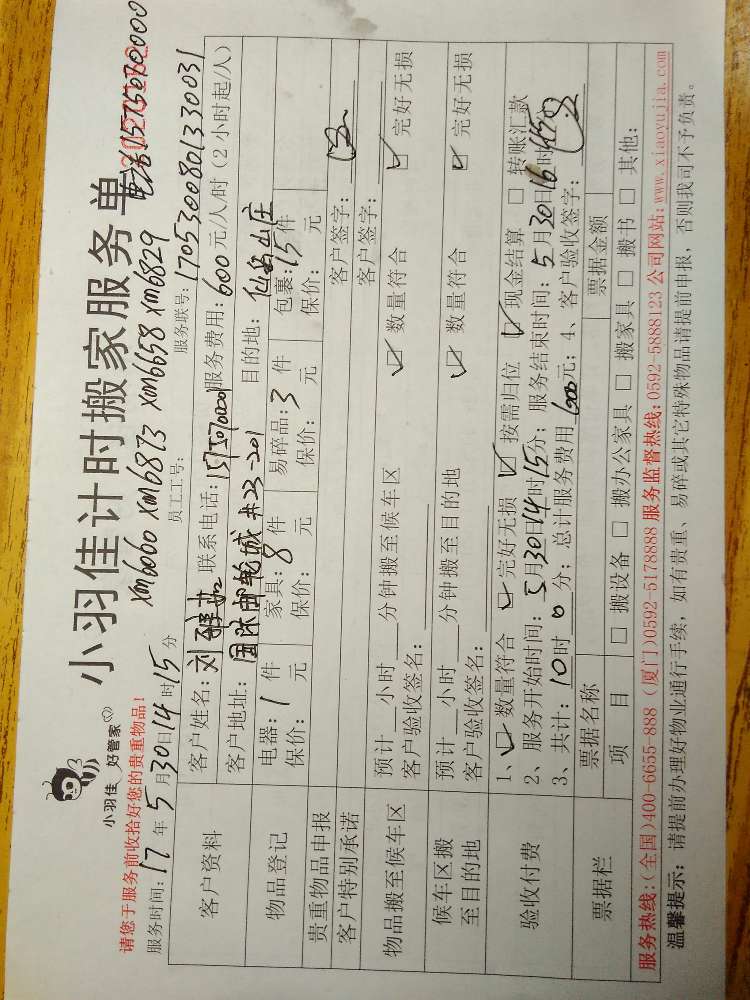 小羽佳 好管家
小羽佳计时搬家服务单
请您于服务前收拾好您的贵重物品!
xm6060 xm6873 xm6658 xm6829
服务时间: 17 年 5 月 30 日 14 时 15 分 员工工号: 服务联号: 1705300801330031
客户资料
客户姓名: 刘 联系电话: 服务费用: 600 元/人/时 (2小时起/人)
客户地址: 国际邮轮城 #23-201 目的地: 仙岳山庄
物品登记
电器: 1 件 家具: 8 件 易碎品: 3 件 包裹: 15 件
保价: 元 保价: 元 保价: 元 保价: 元
贵重物品申报
客户签字:
客户特别承诺
客户签字:
物品搬至候车区
预计 小时 分钟搬至候车区 ☑ 数量符合 ☑ 完好无损
客户验收签名:
候车区搬至目的地
预计 小时 分钟搬至目的地 ☑ 数量符合 ☑ 完好无损
客户验收签名:
验收付费
1、☑ 数量符合 ☑ 完好无损 ☑ 按需归位 ☑ 现金结算 □ 转账汇款
2、服务开始时间: 5 月 30 日 14 时 15 分; 服务结束时间: 5 月 30 日 16 时 15 分
3、共计: 10 时 0 分; 总计服务费用 600 元; 4、客户验收签字:
票据栏
票据名称 票据金额
项目 □ 搬设备 □ 搬办公家具 □ 搬家具 □ 搬书 □ 其他:
服务热线:(全国)400-6655-888 (厦门)0592-5178888 服务监督热线:0592-5888123 公司网站:www.xiaoyujia.com
温馨提示: 请提前办理好物业通行手续, 如有贵重、易碎或其它特殊物品请提前申报, 否则我司不予负责。